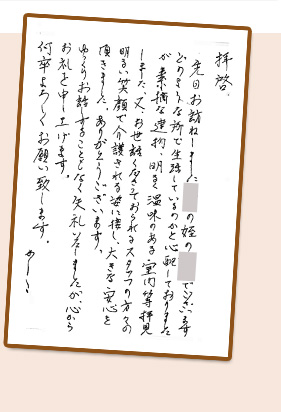 拝啓、
先日お訪ねしました の姪の でございます
どのような所で生活しているのかと心配しておりました
が素敵な建物、明るく温味のある室内等拝見
しました。又、お世話くださっておられるスタッフの方々の
明るい笑顔で介護される姿に接し、大きな安心を
頂きました。ありがとうございます。
ゆっくりお話することもなく失礼致しましたが、心から
お礼を申し上げます。
何卒よろしくお願い致します。